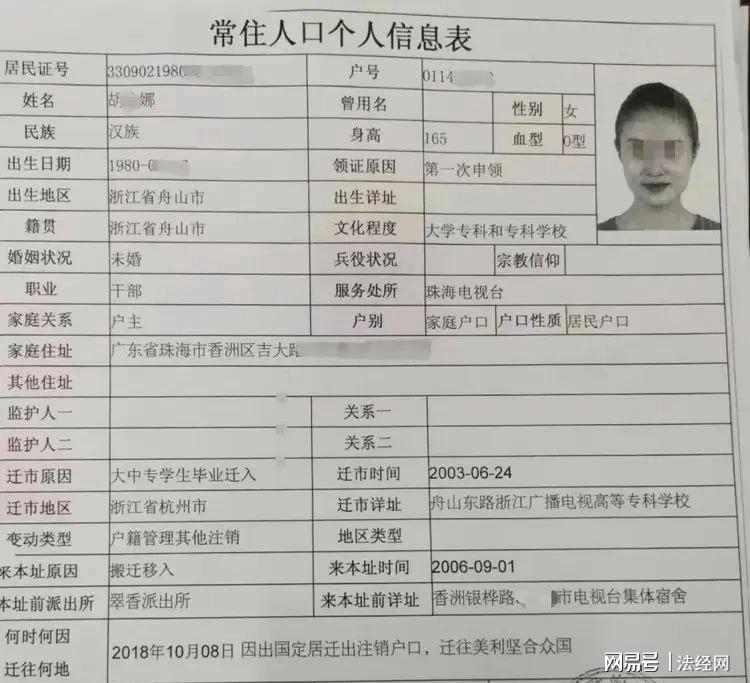 常住人口个人信息表
居民证号 330902198 户号 0114
姓名 胡 娜 曾用名 性别 女
民族 汉族 身高 165 血型 O型
出生日期 1980-0 领证原因 第一次申领
出生地区 浙江省舟山市 出生详址
籍贯 浙江省舟山市 文化程度 大学专科和专科学校
婚姻状况 未婚 兵役状况 宗教信仰
职业 干部 服务处所 珠海电视台
家庭关系 户主 户别 家庭户口 户口性质 居民户口
家庭住址 广东省珠海市香洲区吉大路
其他住址
监护人一 关系一
监护人二 关系二
迁市原因 大中专学生毕业迁入 迁市时间 2003-06-24
迁市地区 浙江省杭州市 迁市详址 舟山东路浙江广播电视高等专科学校
变动类型 户籍管理其他注销 地区类型
来本址原因 搬迁移入 来本址时间 2006-09-01
本址前派出所 翠香派出所 来本址前详址 香洲银桦路、 市电视台集体宿舍
何时何因
迁往何地 2018年10月08日 因出国定居迁出注销户口，迁往美利坚合众国
网易号 | 法经网